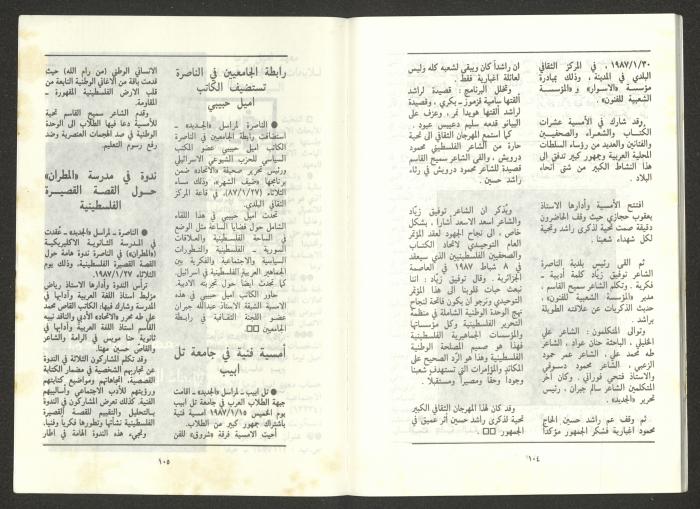 ١٩٨٧/١/٣٠ ، في المركز الثقافي
البلدي في المدينة ، وذلك بمبادرة
مؤسسة «الاسوار» و«المؤسسة
الشعبية للفنون» .
وقد شارك في الأمسية عشرات
الكتاب والشعراء والصحفيين
والفنانين والعديد من رؤساء السلطات
المحلية العربية وجمهور كبير تدفق الى
هذا النشاط الكبير من شتى أنحاء
البلاد .
افتتح الأمسية وأدارها الاستاذ
يعقوب حجازي حيث وقف الحاضرون
دقيقة صمت تحية لذكرى راشد وتحية
لكل شهداء شعبنا .
ثم القى رئيس بلدية الناصرة
الشاعر توفيق زيّاد كلمة أدبية ـ
فكرية ، وتكلم الشاعر سميع القاسم ،
مدير «المؤسسة الشعبية للفنون» ،
حديث الذكريات عن علاقته الطويلة
براشد .
وتوالى المتكلمون : الشاعر علي
الخليلي ، الباحثة حنان عواد ، الشاعر
طه محمد علي ، الشاعر عمر حمود
الزعبي ، الشاعر محمود دسوقي
والاستاذ فتحي فوراني . وكان آخر
المتكلمين الشاعر سالم جبران ، رئيس
تحرير «الجديد» .
ثم وقف عم راشد حسين الحاج
محمود اغبارية فشكر الجمهور مؤكدًا
ان راشداً كان ويبقى لشعبه كله وليس
لعائلة اغبارية فقط .
وتخلل البرنامج : قصيدة لراشد
ألقتها سامية قزموز ـ بكري ، وقصيدة
لراشد ألقتها هويدا نمر ، وعزف على
البيانو قدمه سليم دعيبس عبود .
كما استمع المهرجان الثقافي الى تحية
حارة من الشاعر الفلسطيني محمود
درويش ، والقى الشاعر سميح القاسم
قصيدة للشاعر محمود درويش في رثاء
راشد حسين .
ويذكر ان الشاعر توفيق زيّاد
والشاعر اسعد الاسعد أشارا ، بشكل
خاص ، الى نجاح الجهود لعقد المؤتمر
العام التوحيدي لاتحاد الكتاب
والصحفيين الفلسطينيين الذي سيعقد
في ٨ شباط ١٩٨٧ في العاصمة
الجزائرية . وقال توفيق زيّاد : اننا
نبعث حيات قلوبنا الى هذا المؤتمر
التوحيدي ونرجو ان يكون فاتحة لنجاح
نهج الوحدة الوطنية الشاملة في منظمة
التحرير الفلسطينية وكل مؤسساتها
والمؤسسات الجماهيرية الفلسطينية
فهذا هو صميم المصلحة الوطنية
الفلسطينية وهذا هو الرّد الصحيح على
المكائد والمؤامرات التي تستهدف شعبنا
وجوداً وحقاً ومصيراً ومستقبلا .
وقد كان لهذا المهرجان الثقافي الكبير
تحية لذكرى راشد حسين أثر عميق في
الجمهور □□ .
١٠٤
رابطة الجامعيين في الناصرة
تستضيف الكاتب
اميل حبيبي
● الناصرة ـ لمراسل «الجديد» ـ
استضافت رابطة الجامعيين في الناصرة
الكاتب اميل حبيبي عضو المكتب
السياسي للحزب الشيوعي الاسرائيلي
ورئيس تحرير صحيفة «الاتحاد» ضمن
برنامجها «ضيف الشهر» ، وذلك مساء
الثلاثاء (٨٧/١/٢٧) ، في قاعة المركز
الثقافي البلدي .
تحدث اميل حبيبي في هذا اللقاء
الشامل حول قضايا الساعة مثل الوضع
في الساحة الفلسطينية والعلاقات
السورية ـ الفلسطينية ، والتطورات
السياسية والاجتماعية والفكرية بين
الجماهير العربية الفلسطينية في اسرائيل .
كما تحدث ايضا حول تجربته الادبية .
حاور الكاتب اميل حبيبي في هذه
الامسية الشيقة الاستاذ عبدالله جبران
عضو اللجنة الثقافية في رابطة
الجامعيين □□
أمسية فنية في جامعة تل
ابيب
● تل ابيب ـ لمراسل «الجديد» ـ اقامت
جبهة الطلاب العرب في جامعة تل ابيب
يوم الخميس ١٩٨٧/١/١٥ أمسية فنية
باشتراك جمهور كبير من الطلاب .
أحيت الامسية فرقة «شروق» للفن
الانساني الوطني (من رام الله) حيث
قدمت باقة من الأغاني الوطنية النابعة من
قلب الارض الفلسطينية المقهورة ـ
المقاومة .
وقدم الشاعر سميح القاسم تحية
للأمسية دعا فيها الطلاب الى الوحدة
الوطنية في صد الهجمات العنصرية وضد
رفع رسوم التعليم .
ندوة في مدرسة «المطران»
حول القصة القصيرة
الفلسطينية
● الناصرة ـ لمراسل «الجديد» ـ عُقدت
في المدرسة الثانوية الاكليريكية
(«المطران») في الناصرة ندوة هامة حول
القصة القصيرة الفلسطينية ، وذلك يوم
الثلاثاء ١٩٨٧/١/٢٧ .
ترأس الندوة وأدارها الاستاذ رياض
مزليط استاذ اللغة العربية وآدابها في
المدرسة وشارك فيها : الكاتب القاص محمد
علي طه محرر «الاتحاد» الأدبي والناقد نبيه
القاسم استاذ اللغة العربية وآدابها في
ثانوية حنا مويس في الرامة والشاعر
والقاص حسين مهنا .
وقد تكلم المشاركون الثلاثة في الندوة
عن تجاربهم الشخصية في مضمار الكتابة
القصصية ، اتجاهاتهم ومواضيع كتابتهم
ورؤيتهم للأدب الاجتماعي وأساليبهم
الفنية . كذلك تعرض المشاركون في الندوة
بالتحليل والتقييم للقصة القصيرة
الفلسطينية نشأتها وتطورها فكرياً وفنياً .
وتجيء هذه الندوة الهامة في اطار
١٠٥